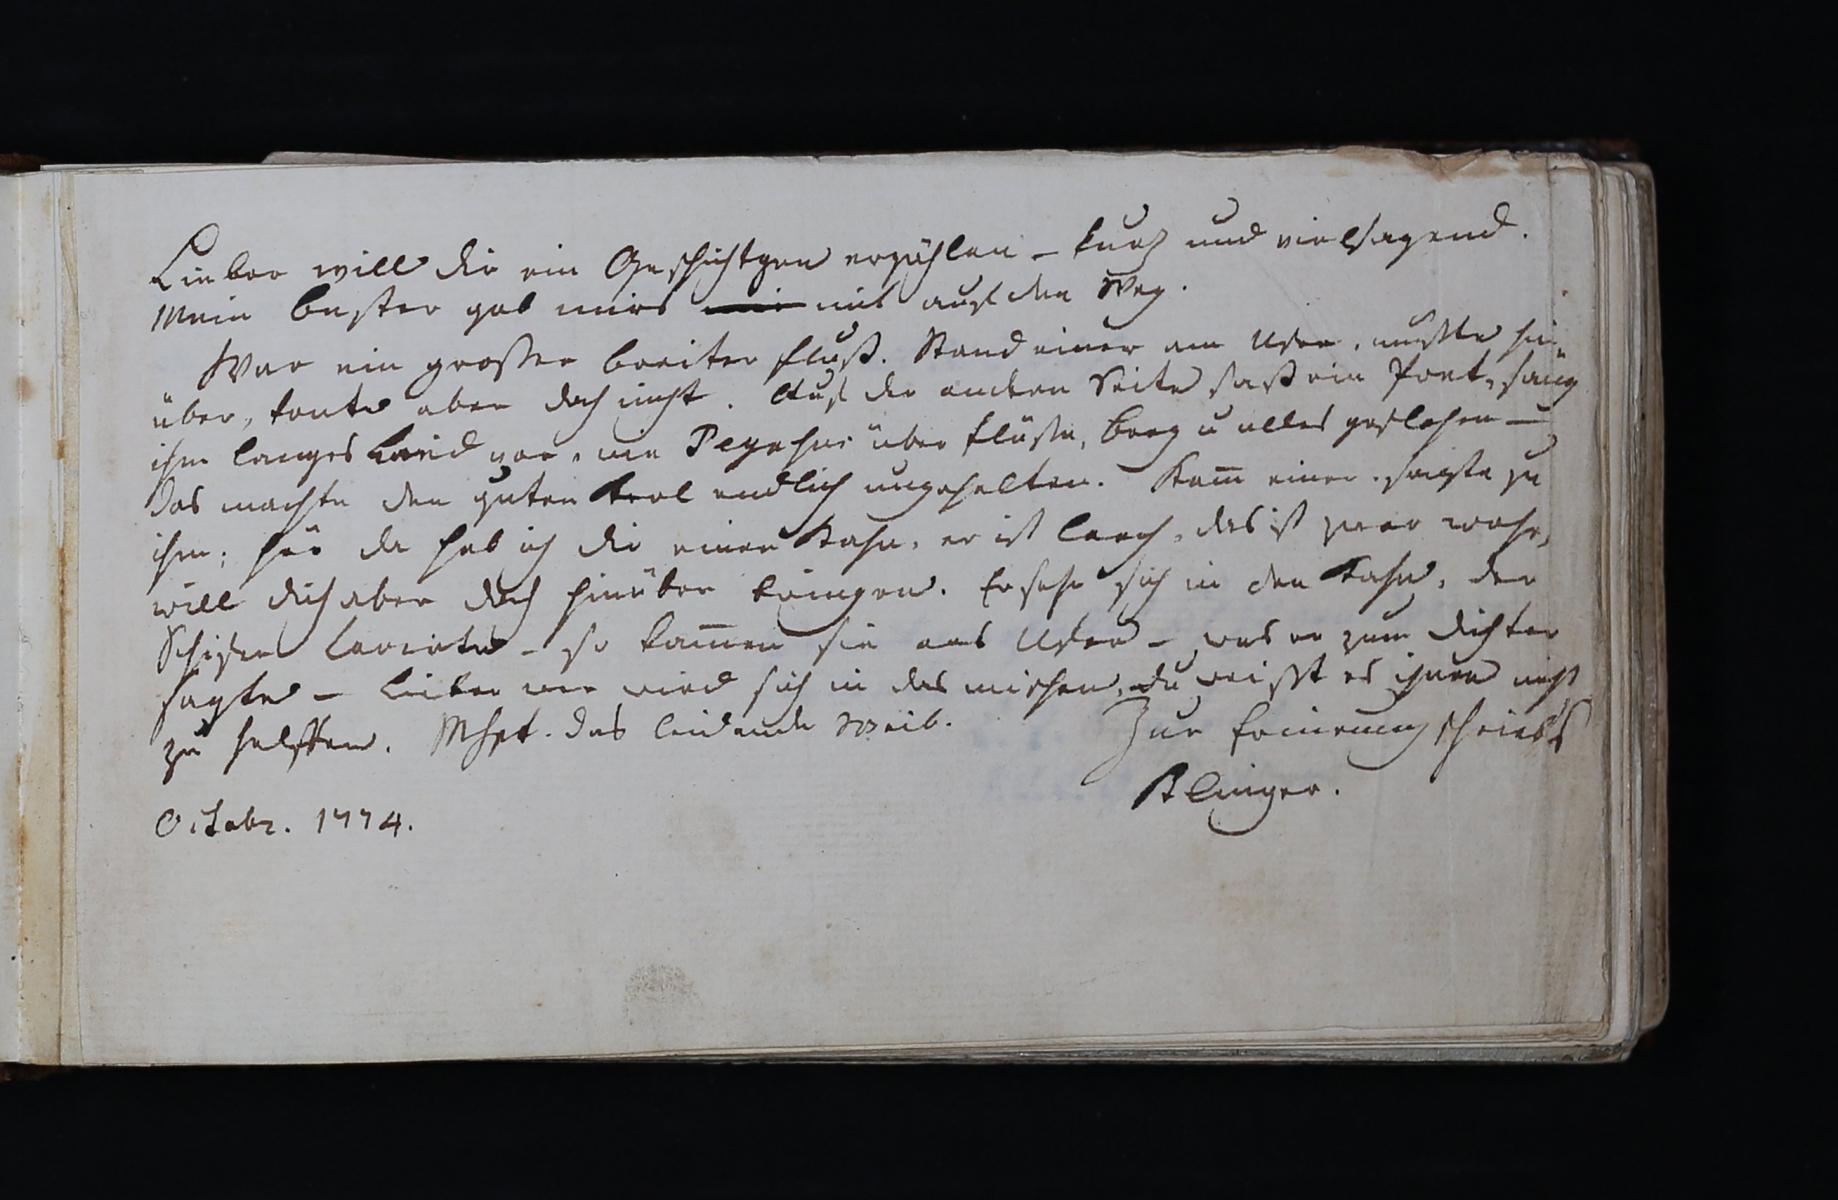 Lieber will dir ein Geschichtgen erzählen – kurz und vielsagend.
Mein bester gab mirs mit auf den Weg.
War ein grosser breiter Fluß. Stand einer am Ufer, mußte hin¬
über, konte aber doch nicht. Auf der andern Seite saß ein Poet, sang
ihm langes Lied vor, wie über Flüsse, Berg u alles geflohen –
das machte den guten Kerl endlich ungehalten. Kam̅ einer, sagte zu
ihm; hör da hab ich dir einen Kahn, er ist leech, das ist zwar wahr,
will dich aber doch hinüber bringen. Er sezt sich in den Kahn, der
Schiffer lavirte – so kam̅en sie ans Ufer – was er zum Dichter
sagte – Lieber wer wird sich in das mischen, du weißt es ihnen nicht
zu helffen. Mspt. das leidende Weib.
Zur Erinrung schriebs
Klinger.
Octobr. 1774.